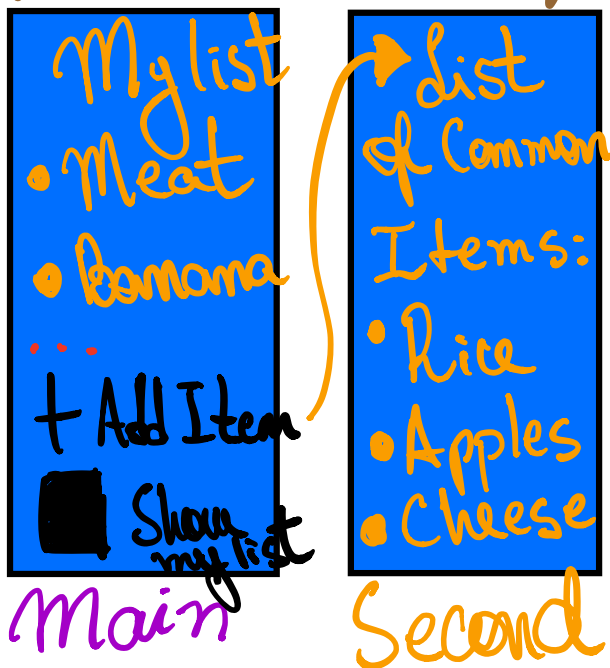 My list
• Meat
• Banana
...
+ Add Item
Show
my list
Main
List
of Common
Items:
• Rice
• Apples
• Cheese
Second